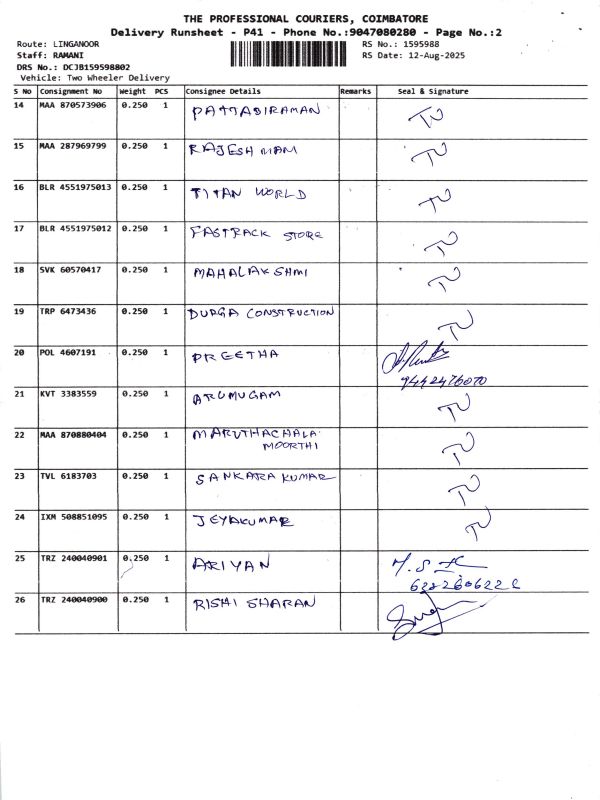 THE PROFESSIONAL COURIERS, COIMBATORE
Delivery Runsheet - P41 - Phone No.:9047080280 - Page No.:2
Route: LINGANOOR RS No.: 1595988
Staff: RAMANI RS Date: 12-Aug-2025
DRS No.: DCJB159598802
Vehicle: Two Wheeler Delivery
S No Consignment No Weight PCS Consignee Details Remarks Seal & Signature
14 MAA 870573906 0.250 1 PATTABIRAMAN
15 MAA 287969799 0.250 1 RAJESH MAM
16 BLR 4551975013 0.250 1 TITAN WORLD
17 BLR 4551975012 0.250 1 FASTRACK STORE
18 SVK 60570417 0.250 1 MAHALAKSHMI
19 TRP 6473436 0.250 1 DURGA CONSTRUCTION
20 POL 4607191 0.250 1 PREETHA
9442476070
21 KVT 3383559 0.250 1 ARUMUGAM
22 MAA 870880404 0.250 1 MARUTHACHALA
MOORTHI
23 TVL 6183703 0.250 1 SANKARA KUMAR
24 IXM 508851095 0.250 1 JEYAKUMAR
25 TRZ 240040901 0.250 1 ARIYAN
26 TRZ 240040900 0.250 1 RISHI SHARAN